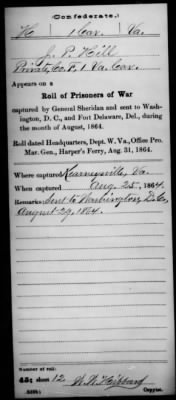 (Confederate.)
H 1 Cav. Va.
J. P. Hill
Private, Co. F, 1 Va. Cav.
Appears on a
Roll of Prisoners of War
captured by General Sheridan and sent to Wash-
ington, D. C., and Fort Delaware, Del., during
the month of August, 1864.
Roll dated Headquarters, Dept. W. Va., Office Pro.
Mar. Gen., Harper's Ferry, Aug. 31, 1864.
Where captured Kearneysville, Va.
When captured Aug. 25, 1864.
Remarks: Sent to Washington, D.C.,
August 29, 1864.
Number of roll:
45; sheet 12 Copyist.